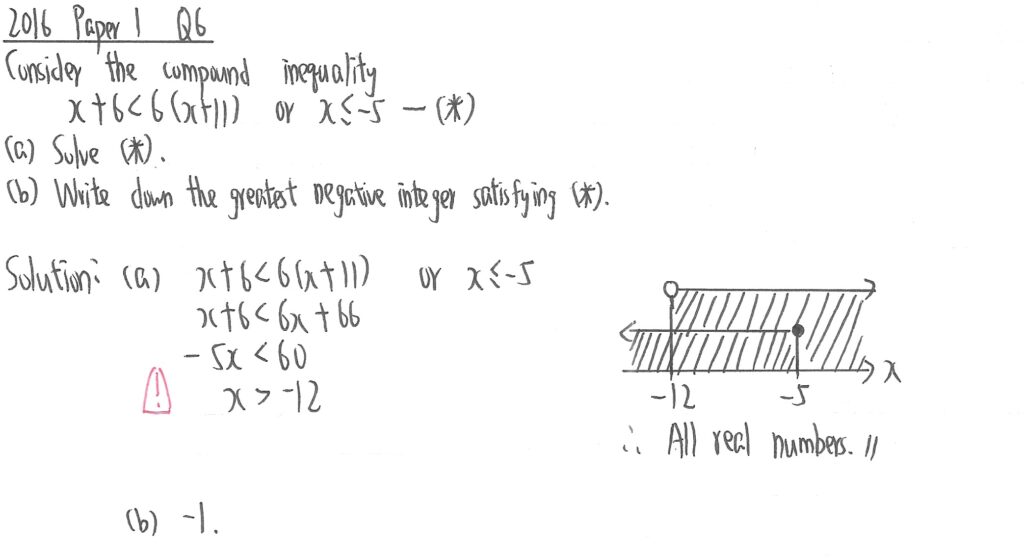 2016 Paper 1 Q6
Consider the compound inequality
x+6<6(x+11) or x≤-5 — (*)
(a) Solve (*).
(b) Write down the greatest negative integer satisfying (*).
Solution: (a) x+6<6(x+11) or x≤-5
x+6<6x+66
-5x<60
! x>-12
x
-12 -5
∴ All real numbers. //
(b) -1.